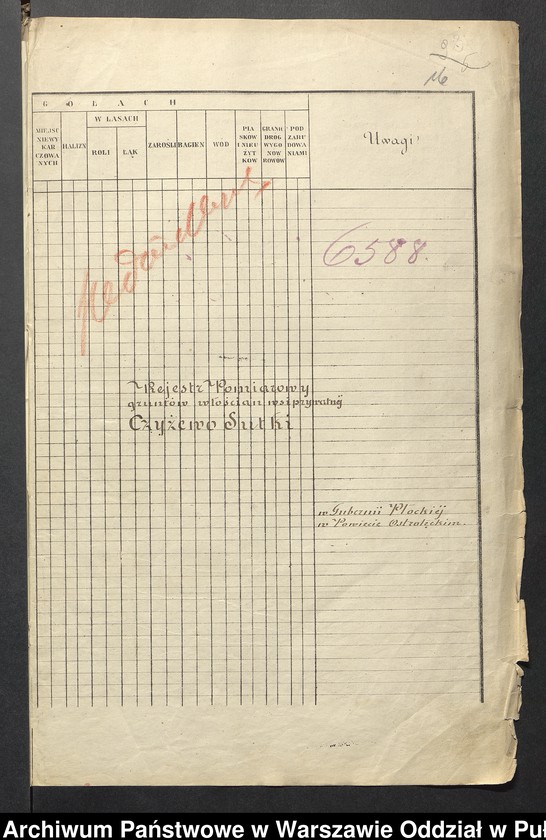 16
G O Ł A C H
MIEJSC NIEWY KAR CZOWA NYCH
HALIZN
W LASACH
ROLI
ŁĄK
ZAROŚLI
BAGIEN
WOD
PIA SKOW I NIEU ŻYT KOW
GRANIC DROG WYGO NOW ROWOW
POD ZABU DOWA NIAMI
Uwagi
6588.
Rejestr Pomiarowy
gruntów włościan wsi prywatnéj
Czyżewo Sutki
w Gubernii Płockiéj
w Powiecie Ostrołęckim.
Archiwum Państwowe w Warszawie Oddział w Puł